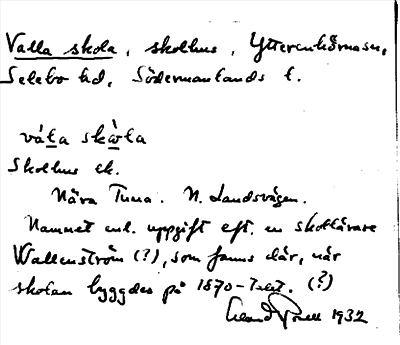 Valla skola, skolhus, Ytterenhörnasn,
Selebo hd, Södermanlands l.
vál̲a skẁ̲l̲a
Skolhus ek.
Nära Tuna. N. Landsvägen.
Namnet enl. uppgift eft. en skollärare
Wallenström (?), som fanns där, när
skolan byggdes på 1870-talet. (?)
1932